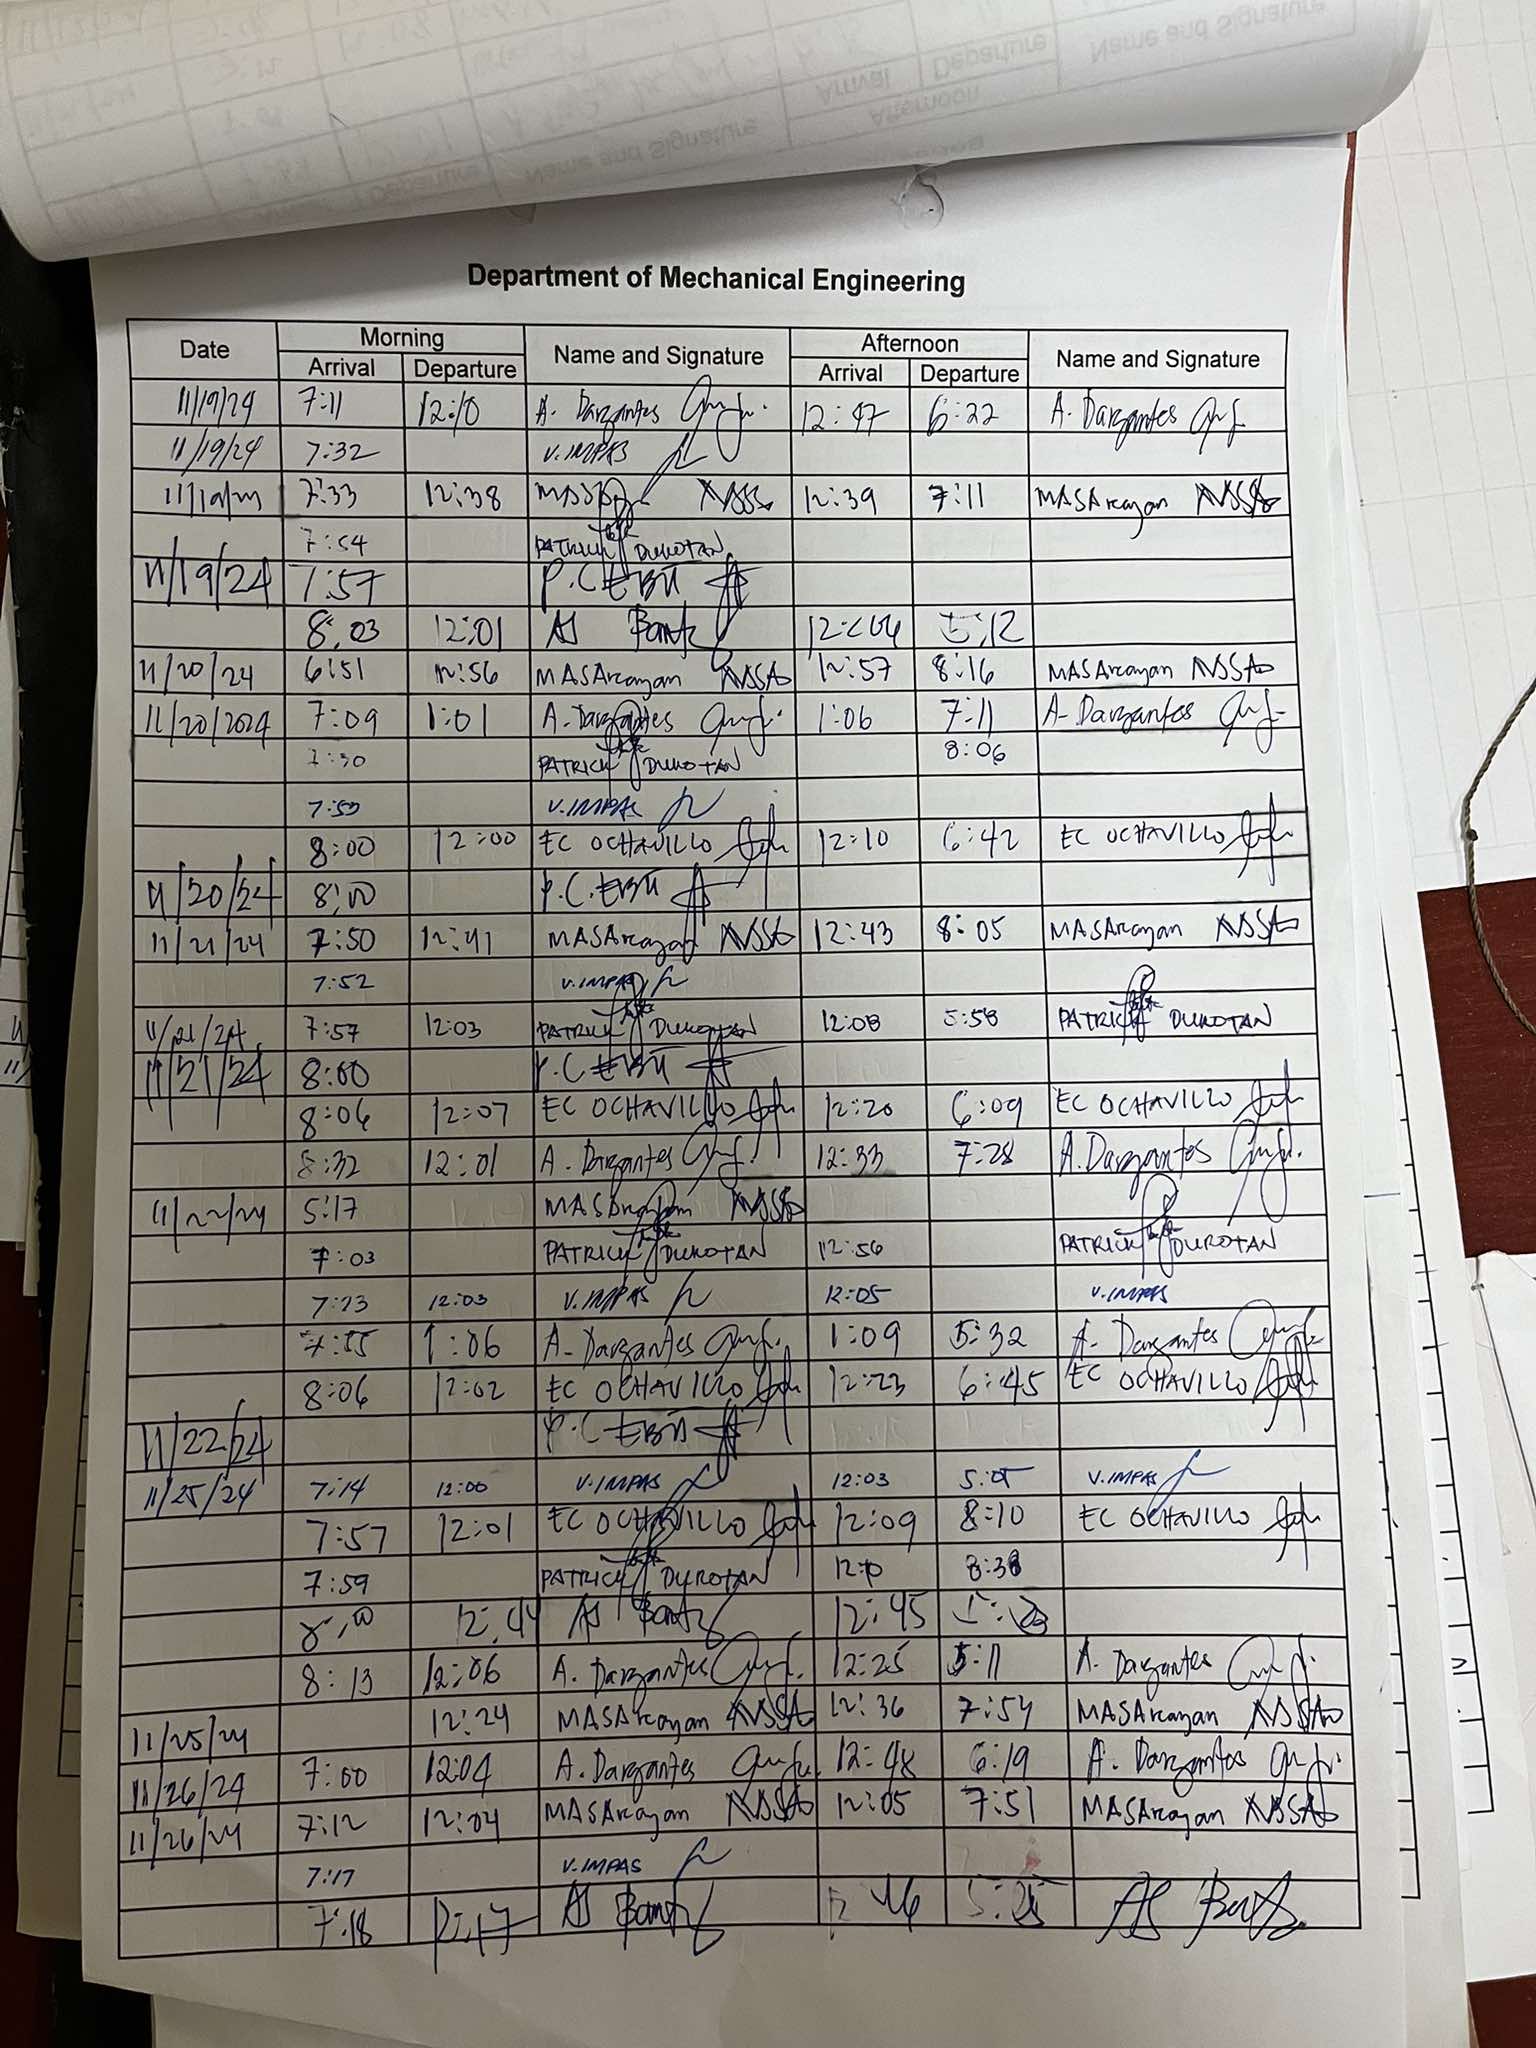 Department of Mechanical Engineering
Date Morning Name and Signature Afternoon Name and Signature
Arrival Departure Arrival Departure
11/19/24 7:11 12:10 A. Dargantes 12:47 6:22 A. Dargantes
11/19/24 7:32 V. IMPAS
7:33 12:38 12:39 7:11 MASArcayan
7:54 PATRICK DUROTAN
11/19/24 7:57 P. C. EBU
8:03 12:01 AS 5:12
11/20/24 6:51 12:56 MASArcayan 12:57 8:16 MASArcayan
11/20/2024 7:09 1:01 A. Dargantes 1:06 7:11 A. Dargantes
7:30 PATRICK DUROTAN 8:06
V. IMPAS
8:00 12:00 EC OCHAVILLO 12:10 6:42 EC OCHAVILLO
11/20/24 8:00 P. C. EBU
11/21/24 7:50 12:41 MASArcayan 12:43 8:05 MASArcayan
7:52 V. IMPAS
11/21/24 7:57 12:03 PATRICK DUROTAN 12:08 5:58 PATRICK DUROTAN
11/21/24 8:00 P. C. EBU
8:06 12:07 EC OCHAVILLO 12:20 6:09 EC OCHAVILLO
8:32 12:01 A. Dargantes 12:33 7:28 A. Dargantes
11/22/24 5:17 MASArcayan
7:03 PATRICK DUROTAN 12:56 PATRICK DUROTAN
7:23 12:03 V. IMPAS 12:05 V. IMPAS
7:55 1:06 A. Dargantes 1:09 5:32 A. Dargantes
8:06 12:02 EC OCHAVILLO 12:23 6:45 EC OCHAVILLO
11/22/24 P. C. EBU
11/25/24 7:14 12:00 V. IMPAS 12:03 5:05 V. IMPAS
7:57 12:01 EC OCHAVILLO 12:09 8:10 EC OCHAVILLO
7:59 PATRICK DUROTAN 8:38
8:00 12:44 AS 12:45
8:13 12:06 A. Dargantes 12:25 5:11 A. Dargantes
11/25/24 12:24 MASArcayan 12:36 7:54 MASArcayan
11/26/24 7:00 12:04 A. Dargantes 12:48 6:19 A. Dargantes
11/26/24 7:12 12:04 MASArcayan 12:05 7:51 MASArcayan
7:17 V. IMPAS
7:18 12:17 AS AS